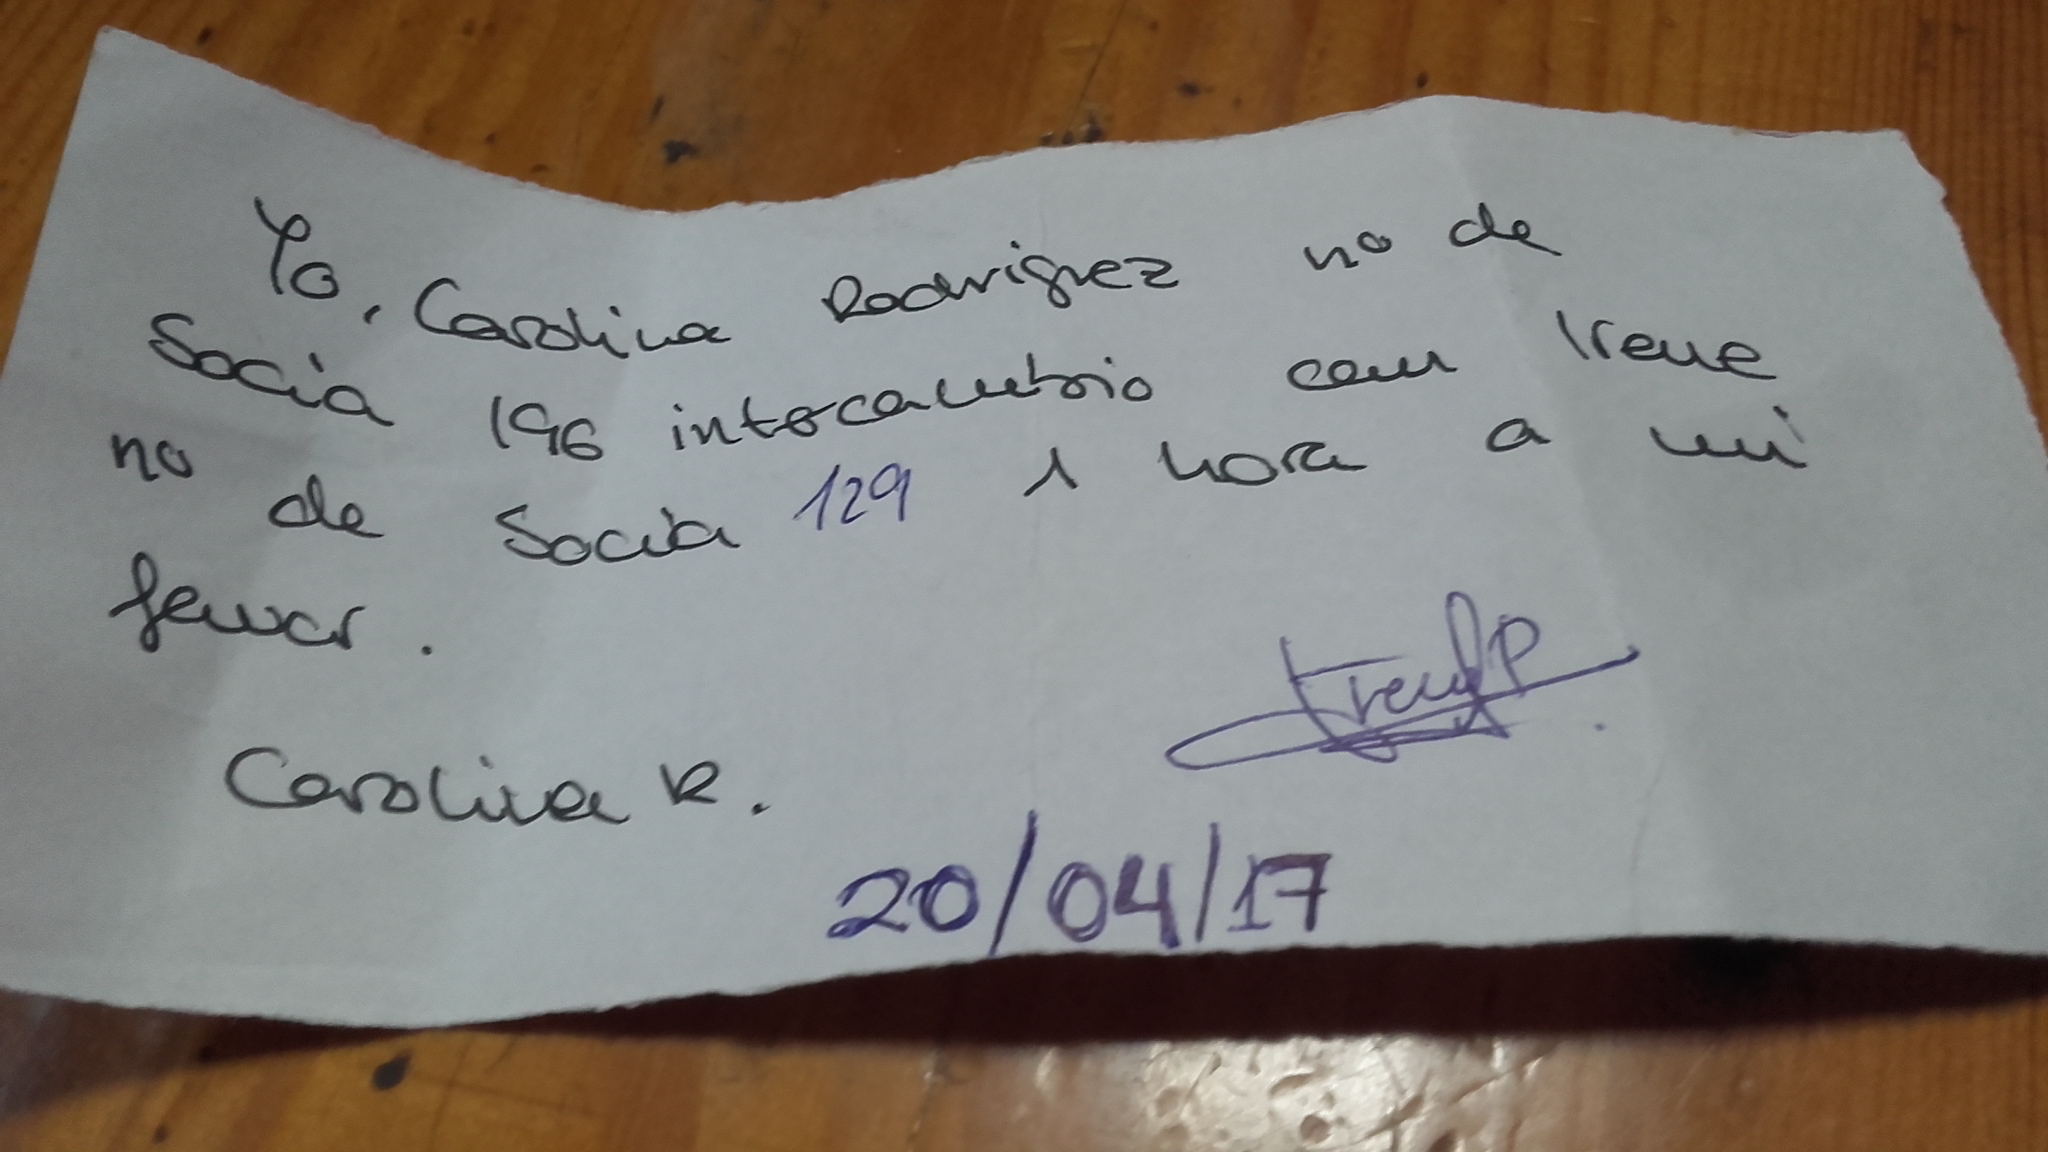 Yo, Carolina Rodriguez nº de
Socia 196 intercambio con Irene
nº de Socia 129 1 hora a mi
favor.
Carolina R.
20/04/17